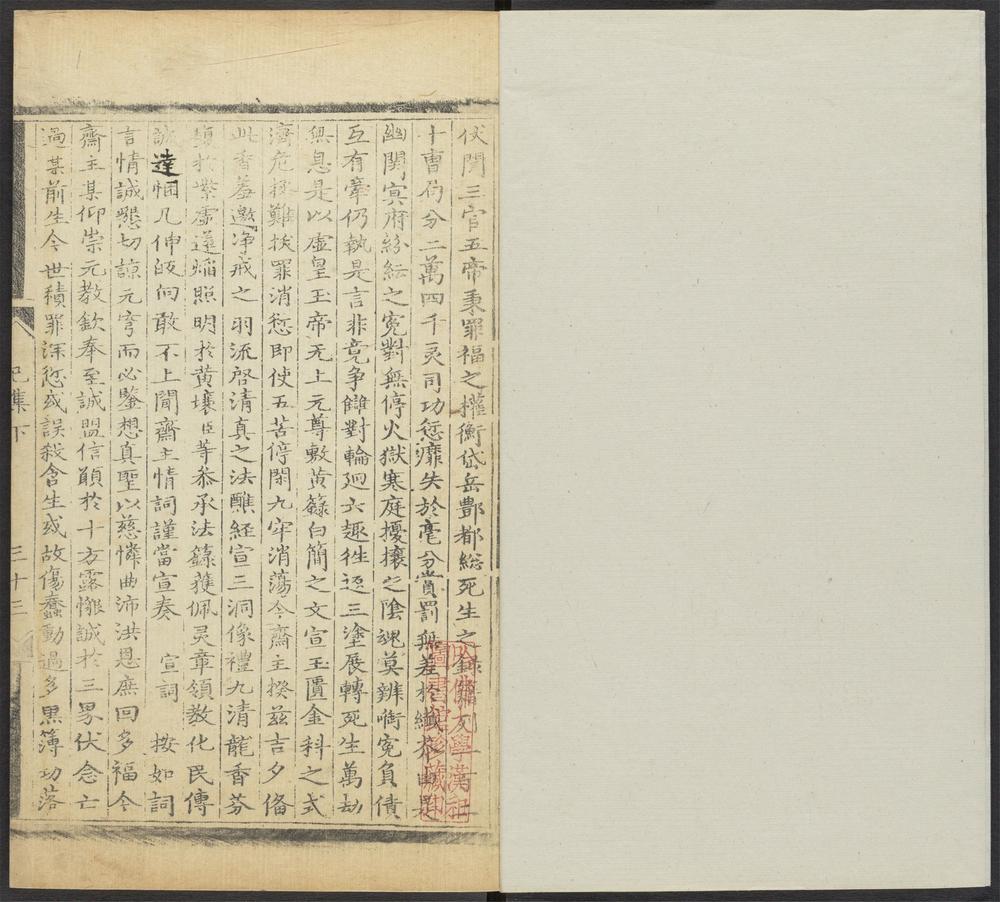 伏聞三官五帝秉罪福之權衡岱岳酆都總死生之錄籍列二十
十曹局分二萬四千灵司功愆靡失於毫分賞罰無差於纖芥
幽關冥府紛紜之冤對無停火獄寒庭擾攘之陰魂莫辨啣冤負債
互有牽仍執是言非竞争雠對輪廻六趣徃返三塗展轉死生萬劫
無息是以虛皇玉帝无上元尊敷黄籙白簡之文宣玉匱金科之式
濟危拯難拔罪消愆即使五苦停閑九牢消蕩今齋主揆兹吉夕俻
此香羞邀净戒之羽流啓清真之法醮経宣三洞像禮九清龍香芬
於紫霄蓮熖照明於黄壤臣等叅承法籙獲佩灵章領教化民傳
誠達悃凡伸皈向敢不上聞齋主情詞謹當宣奏　宣詞　按如詞
言情誠懇切諒元穹而必鑒想真聖以慈憐曲沛洪恩庶回多福今
齋主某仰崇元教欽奉至誠盟信願於十方露懺誠於三界伏念亡
過某前生今世積罪深愆或誤殺含生或故傷蠢動過多黒簿功落
已集下　三十三
哈佛大學漢和
圖書館珍藏印